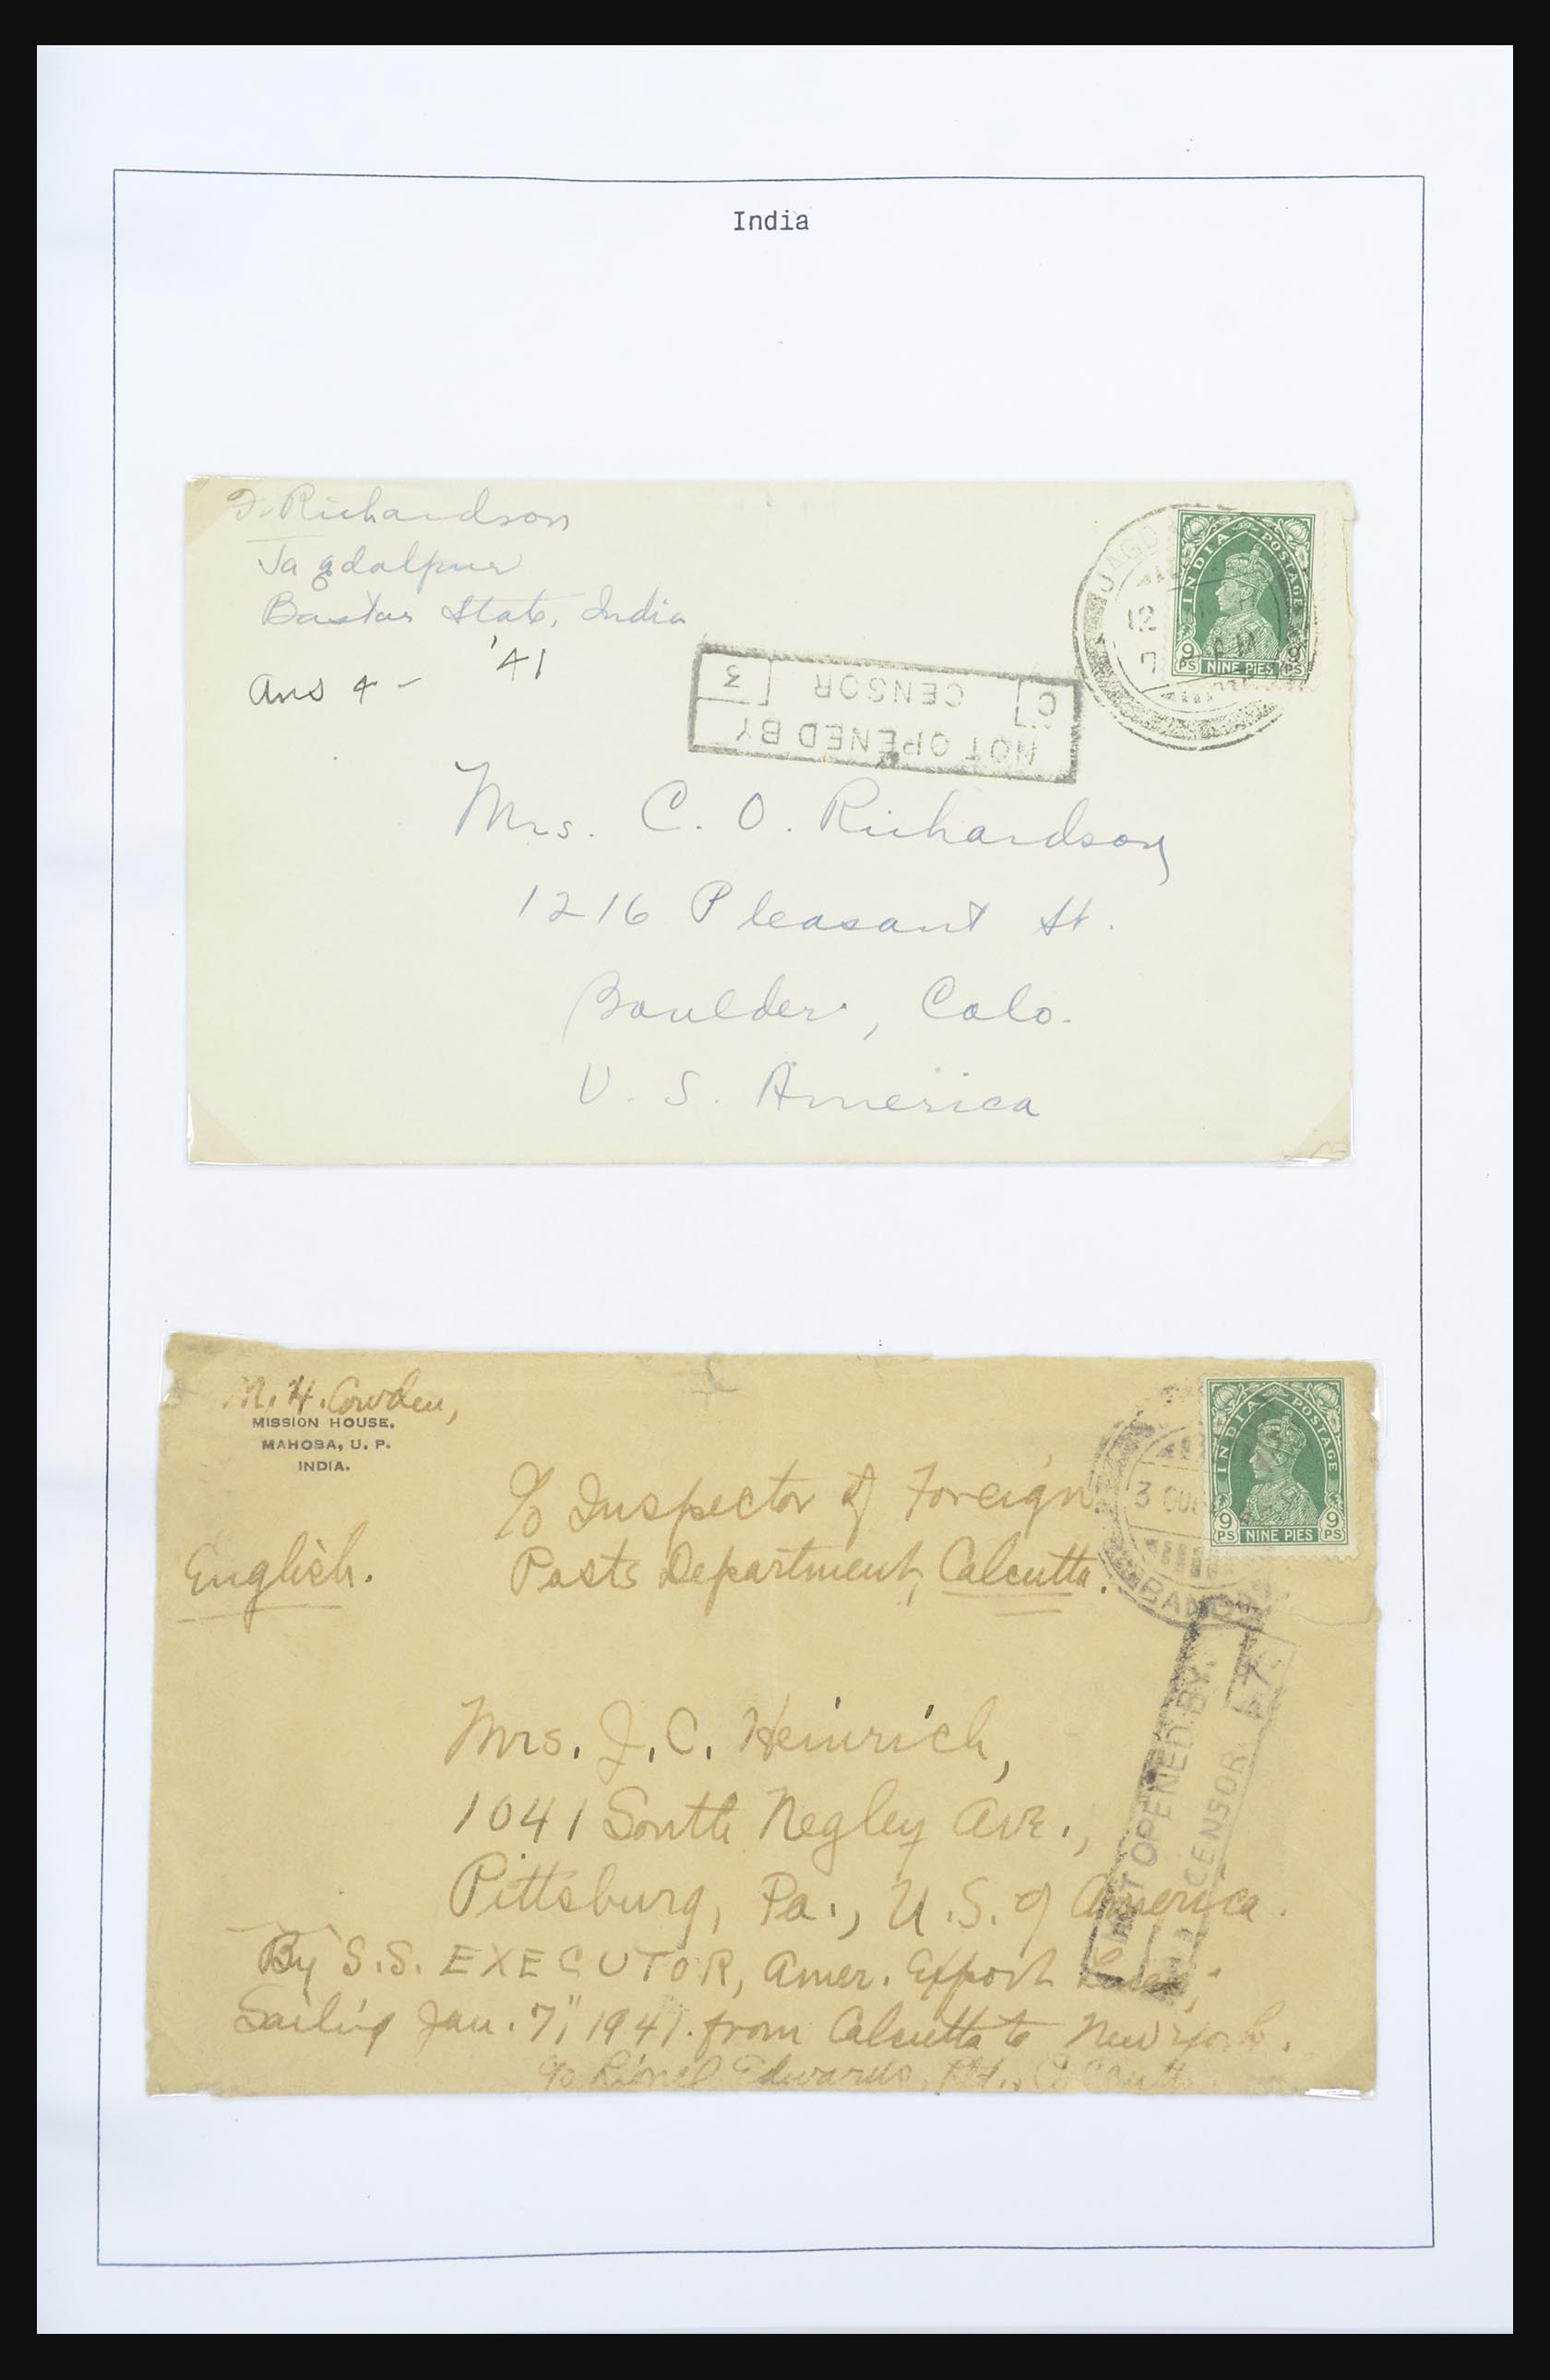 India
F. Richardson
Jagdalpur
Bastar State, India
Ans 4 - '41
JAGD
12
7 AM
INDIA POSTAGE
9 PS NINE PIES 9 PS
NOT OPENED BY
C CENSOR 3
Mrs. C. O. Richardson
1216 Pleasant St.
Boulder, Colo.
U. S. America
M. H. Cowden,
MISSION HOUSE.
MAHOBA, U. P.
INDIA.
English.
c/o Inspector of Foreign
Posts Department, Calcutta.
INDIA POSTAGE
9 PS NINE PIES 9 PS
3
BANDA
NOT OPENED BY
CENSOR
Mrs. J. C. Heinrich,
1041 South Negley Ave.,
Pittsburg, Pa., U.S. of America.
By S.S. EXECUTOR, Amer. Export Lines;
Sailing Jan. 7," 1941. from Calcutta to New York.
c/o Lionel Edwards, Ltd., Calcutta